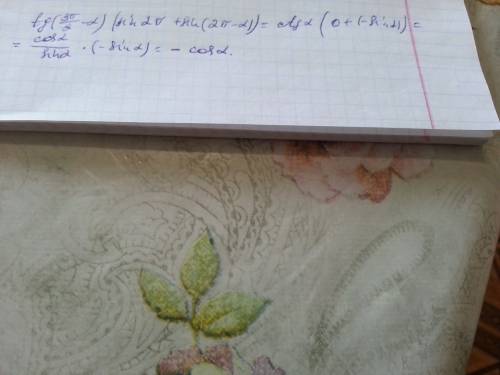 tg(3π/2 - α) (sin 2π + sin(2π - α)) = ctg α (0 + (-sin α)) =
= cos α / sin α · (-sin α) = - cos α.